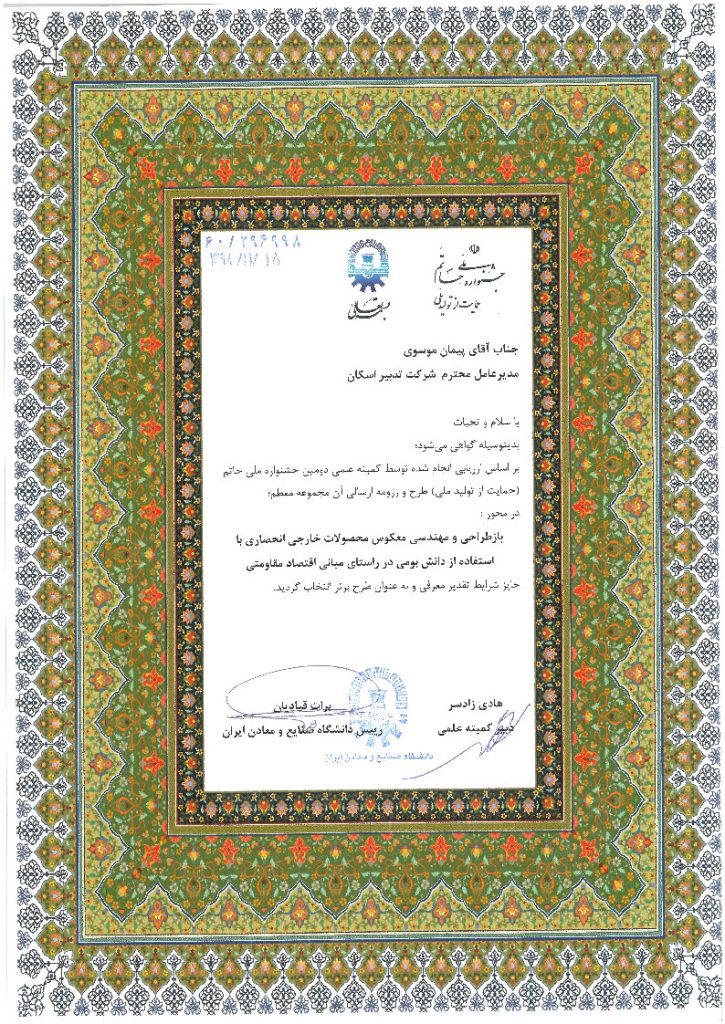 ۶۰/۲۹۶۹۹۸
۱۳۹۸/۱۱/۱۵
جشنواره ملی حاتم
حمایت از تولید ملی
بسمه تعالی
جناب آقای پیمان موسوی
مدیرعامل محترم شرکت تدبیر اسکان
با سلام و تحیات
بدینوسیله گواهی می‌شود؛
بر اساس ارزیابی انجام شده توسط کمیته علمی دومین جشنواره ملی حاتم
(حمایت از تولید ملی) طرح و رزومه ارسالی آن مجموعه معظم؛
در محور :
بازطراحی و مهندسی معکوس محصولات خارجی انحصاری با
استفاده از دانش بومی در راستای مبانی اقتصاد مقاومتی
حایز شرایط تقدیر معرفی و به عنوان طرح برتر انتخاب گردید.
هادی زادسر
دبیر کمیته علمی
برات قبادیان
رییس دانشگاه صنایع و معادن ایران
دانشگاه صنایع و معادن ایران